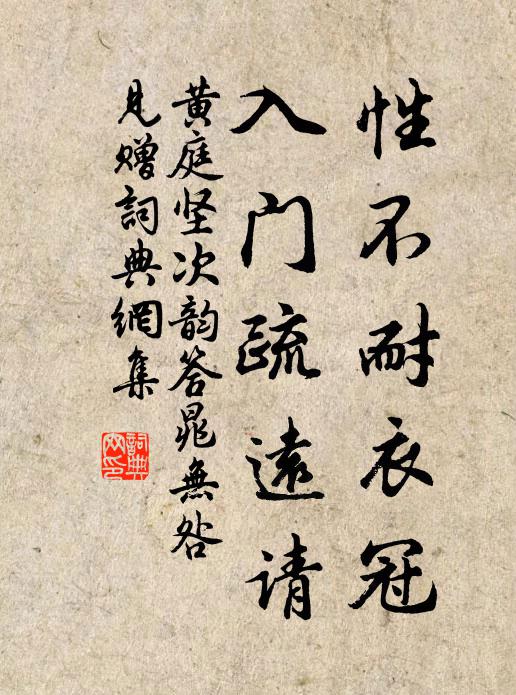 性不耐衣冠
入门疏远请
黄庭坚次韵答晁無咎
見赠詞典網集
詞典
网印